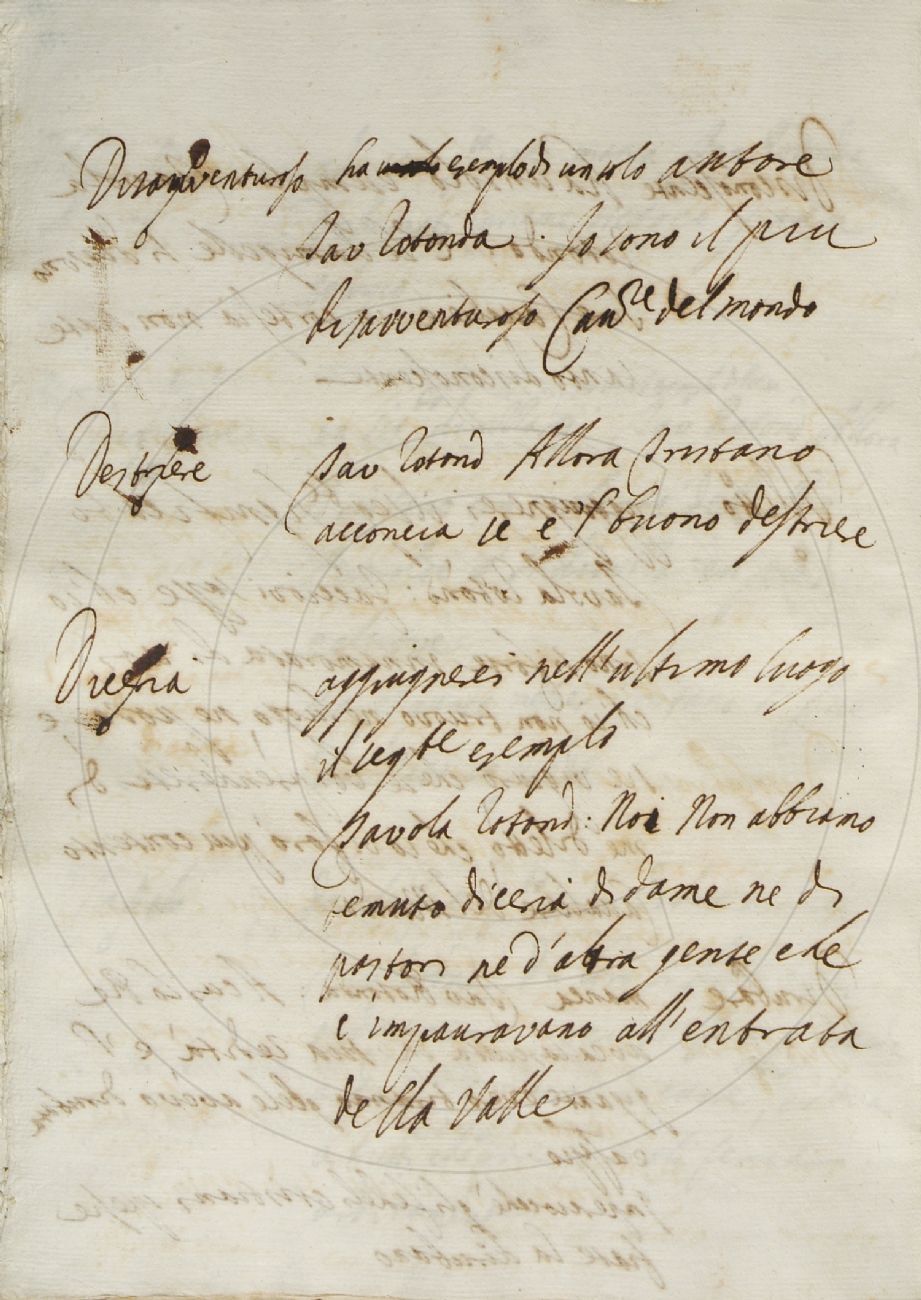 Disavventuroso ha esemplo di un solo autore
Tav Rotonda. Io sono il piu
disavventuroso Cav.re del mondo
Destriere Tav Rotond Allora Tristano
acconcia se e 'l buono destriere
Diceria aggiugnere nell'ultimo luogo
il seg.te esemplo
Tavola Rotond: Noi Non abbiamo
temuto diceria di dame ne di
pastori ne d'altra gente che
c'impauravano all'entrata
della Valle